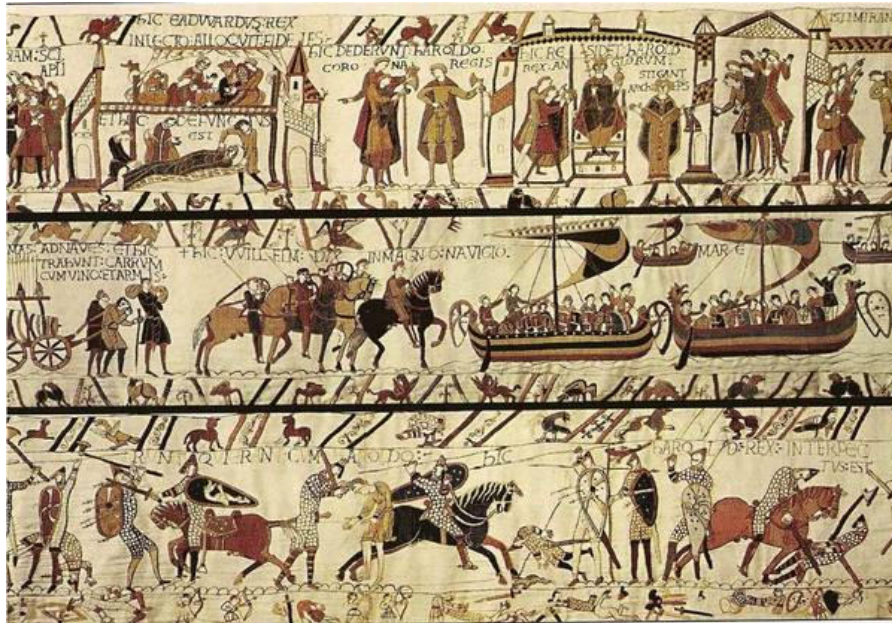 HIC EADWARDVS: REX
IN LECTO: ALLOQVIT: FIDELES:
ET HIC DEFVNCTVS
EST
HIC DEDERVNT: HAROLDO
CORONA REGIS
HIC RESIDET: HAROLD
REX: ANGLORVM:
STIGANT
ARCHIEPS
ISTI MIRANT
AD NAVES: ET HIC
TRAHVNT: CARRVM
CVM VINO: ET ARMIS:
+ HIC: VVILLELM: DVX IN MAGNO: NAVIGIO:
MARE
HAROLDO: HIC HAROLD: REX: INTERFEC
TVS: EST